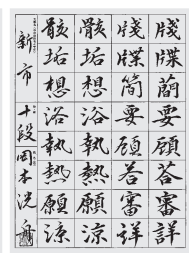 牋牒蕑要顧荅審詳
牋牒簡要顧荅審詳
骸垢想浴執熱願涼
骸垢想浴執熱願涼
新市 十段 岡本洸舟